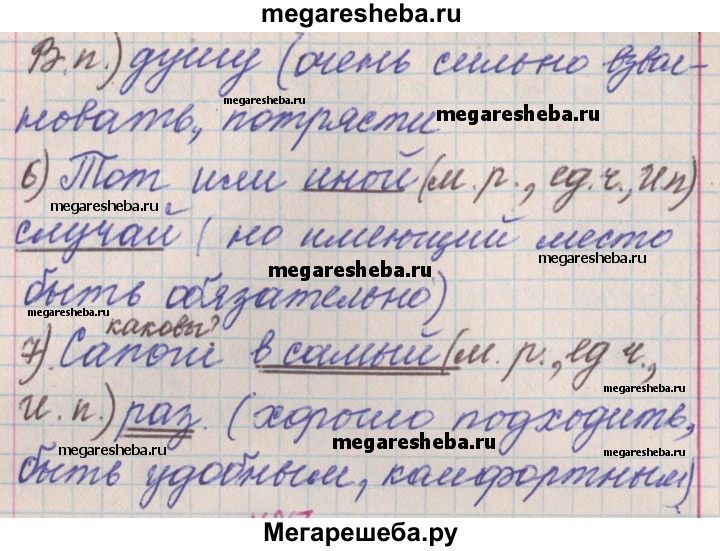 megaresheba.ru
В.п.) душу (очень сильно взвол-
новать, потрясти
megaresheba.ru
megaresheba.ru
6) Тот или иной (м.р., ед.ч., И.п)
megaresheba.ru
случай ( но имеющий место
megaresheba.ru
megaresheba.ru
быть обязательно)
megaresheba.ru
каковы?
7) Сапоги в самый (м.р., ед ч.,
megaresheba.ru
И.п.) раз. (хорошо подходить,
megaresheba.ru
megaresheba.ru
быть удобным, комфортным)
megaresheba.ru
Мегарешеба.ру